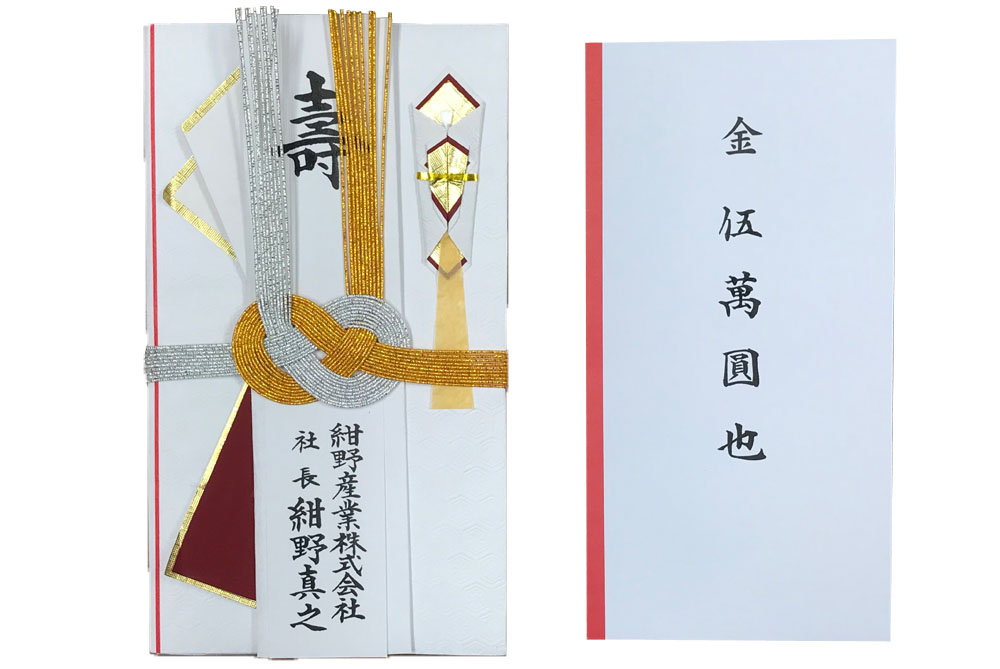 壽
紺野産業株式会社
社長 紺野真之
金伍萬圓也